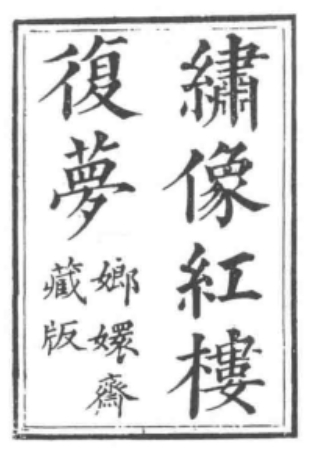 繡像紅樓
復夢
嫏嬛齋
藏版